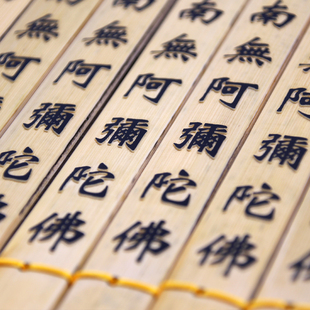 南無阿彌陀佛
南無阿彌陀佛
南無阿彌陀佛
南無阿彌陀佛
無阿彌陀佛